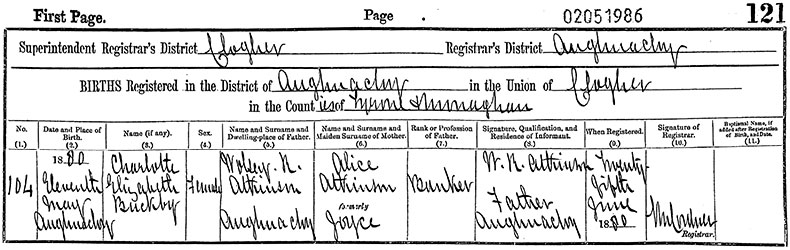 First Page. Page 02051986 121
Superintendent Registrar's District Clogher Registrar's District Aughnacloy
BIRTHS Registered in the District of Aughnacloy in the Union of Clogher
in the Counties of Tyrone & Monaghan
No. Date and Place of Birth. Name (if any). Sex. Name and Surname and Dwelling-place of Father. Name and Surname and Maiden Surname of Mother. Rank or Profession of Father. Signature, Qualification, and Residence of Informant. When Registered. Signature of Registrar. Baptismal Name, if added after Registration of Birth, and Date.
(1.) (2.) (3.) (4.) (5.) (6.) (7.) (8.) (9.) (10.) (11.)
1880 Charlotte Wolsey. R. Alice W. R. Atkinson Twenty
104 Eleventh Elizabeth Female Atkinson Atkinson Banker Father Fifth
May Buckby formerly June
Aughnacloy Aughnacloy Joyce Aughnacloy 1880 Registrar.